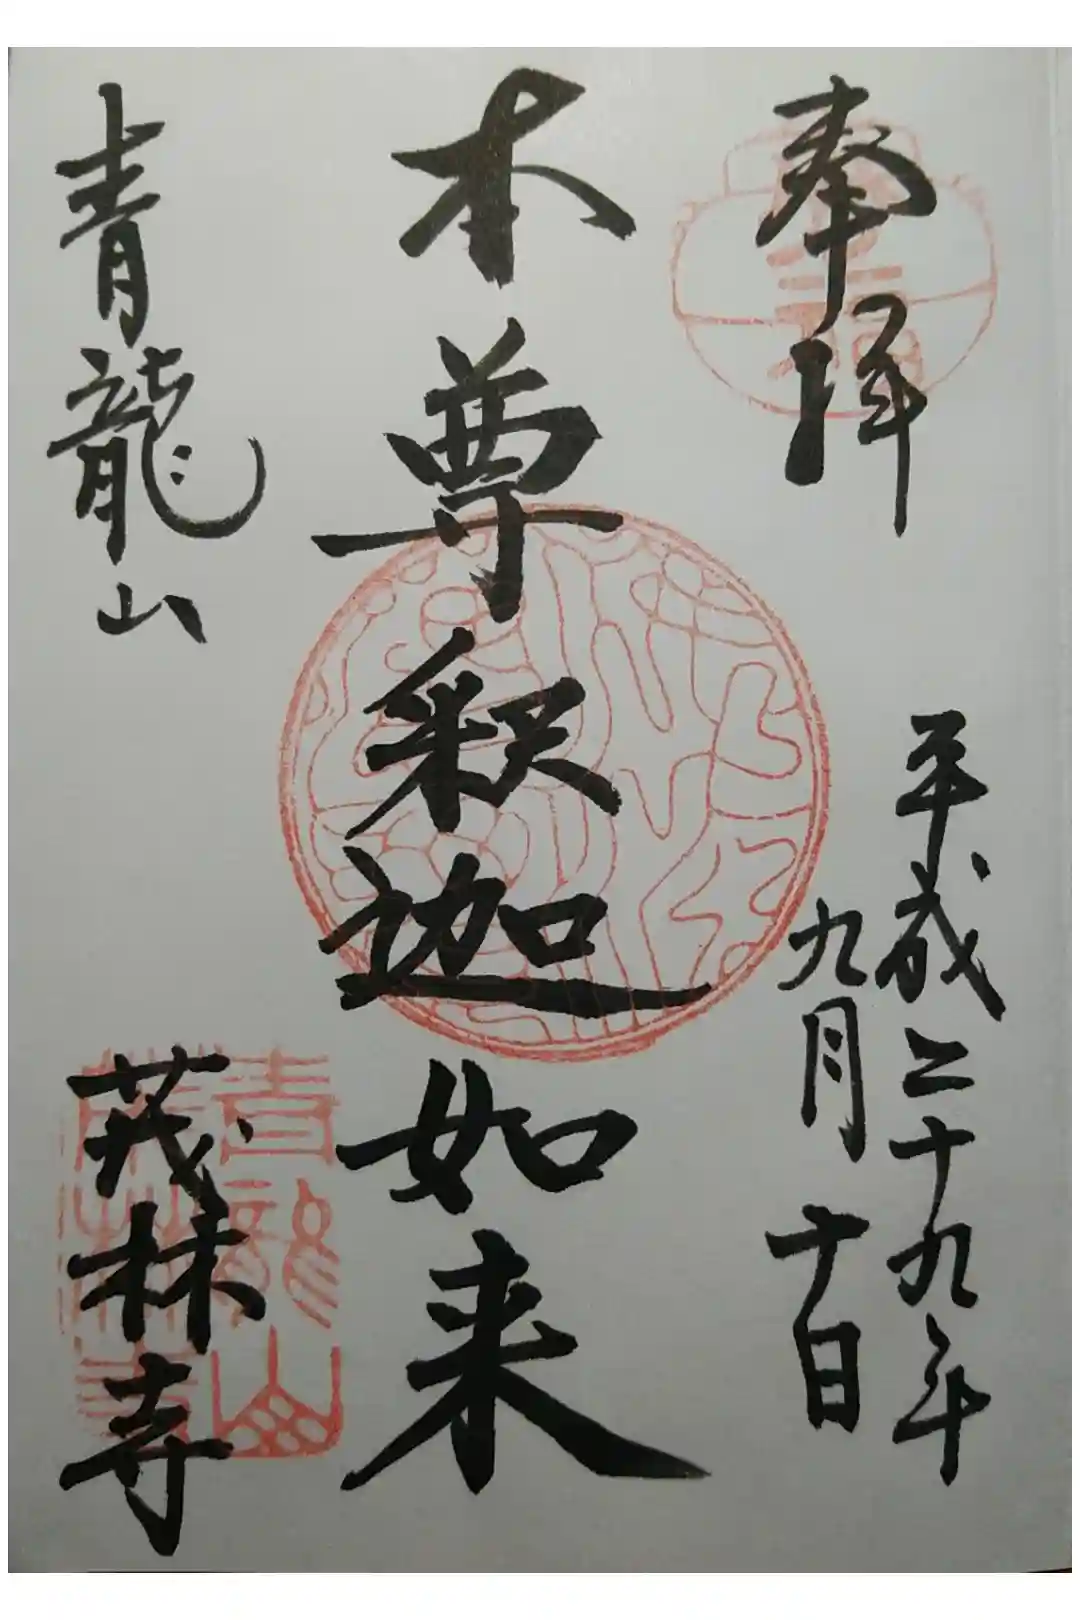 奉拝
平成二十九年
九月十日
本尊釈迦如来
青龍山
茂林寺
青龍山
茂林寺